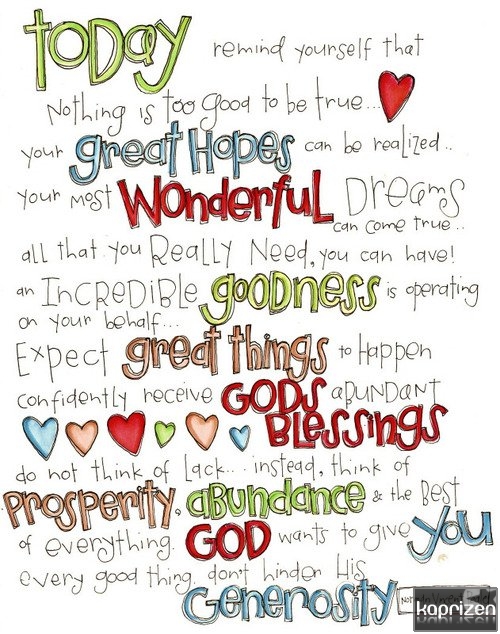 today remind yourself that
Nothing is too good to be true...
your great Hopes can be realized..
your most Wonderful Dreams
can come true..
all that you Really Need, you can have!
an Incredible goodness is operating
on your behalf...
Expect great things to Happen
confidently receive GODS aBUNDANT
Blessings
do not think of Lack... instead, think of
Prosperity, aBundance & the Best
of everything. GOD wants to give You
every good thing. don't hinder His
Generosity
kaprizen